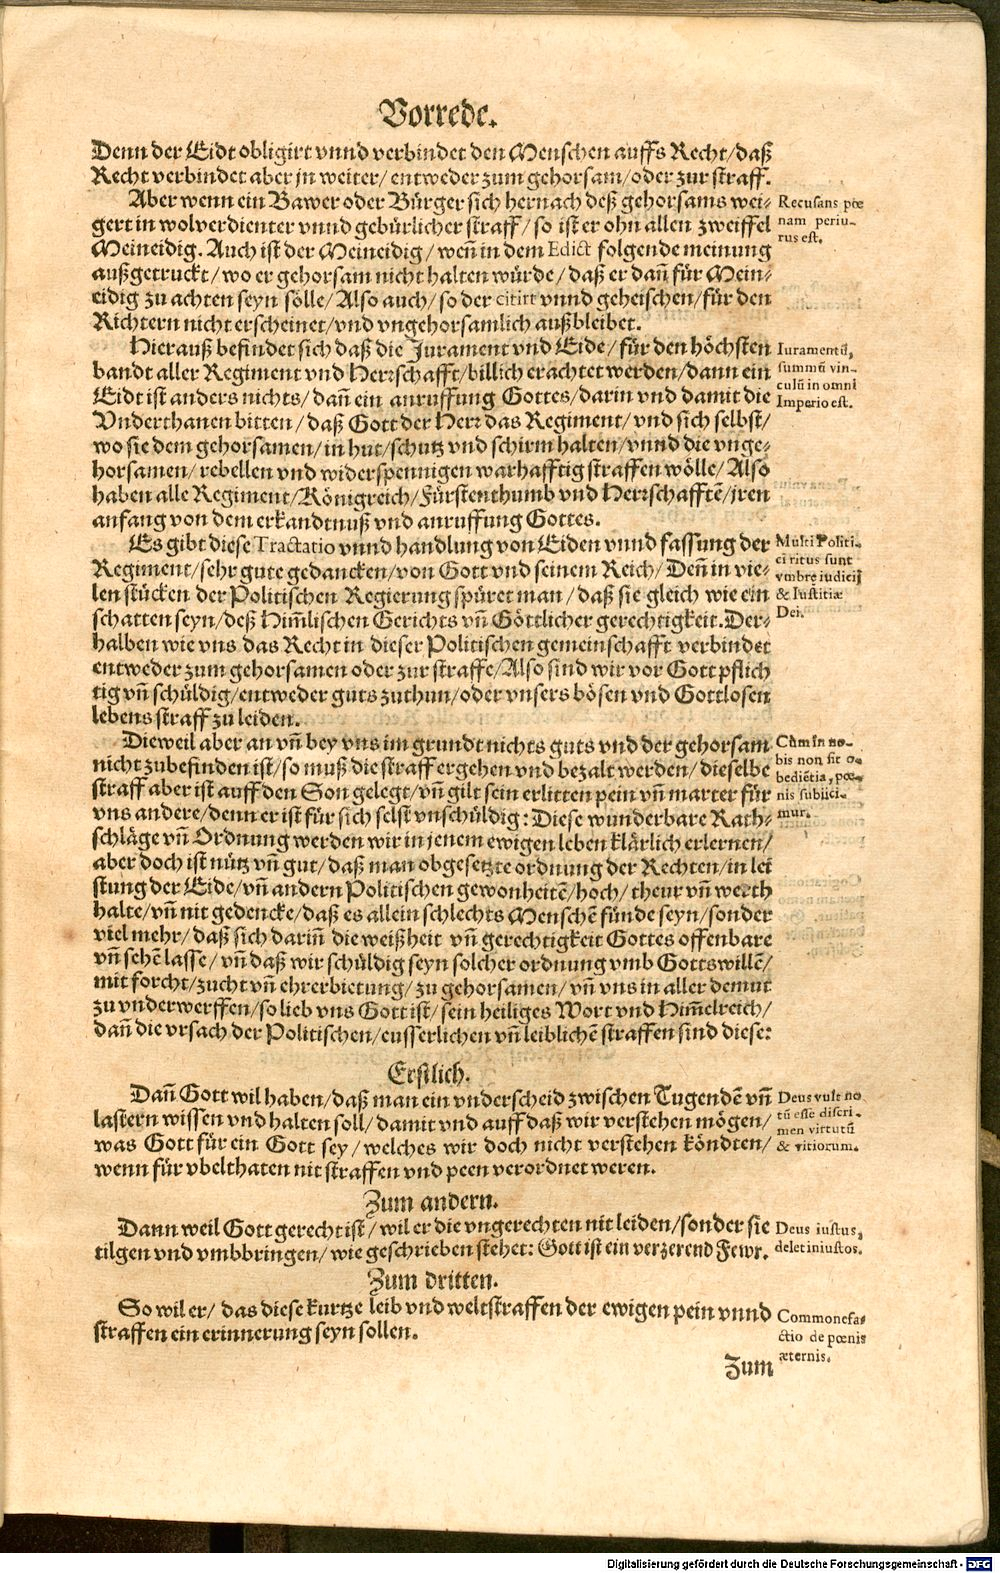 Vorrede.
Denn der Eidt obligirt vnnd verbindet den Menschen auffs Recht/daß
Recht verbindet aber jn weiter/ entweder zum gehorsam/oder zur straff.
Aber wenn ein Bawer oder Bürger sich hernach deß gehorsams wei-
gert in wolverdienter vnnd gebürlicher straff/ so ist er ohn allen zweiffel
Meineidig. Auch ist der Meineidig/ weñ in dem Edict folgende meinung
außgetruckt/ wo er gehorsam nicht halten würde/ daß er dañ für Mein-
eidig zu achten seyn sölle/ Also auch/ so der citirt vnnd geheischen/ für den
Richtern nicht erscheinet/ vnd vngehorsamlich außbleibet.
Recusans pœ
nam periu-
rus est.
Hierauß befindet sich daß die Jurament vnd Eide/ für den höchsten
bandt aller Regiment vnd Herrschafft/ billich erachtet werden/ dann ein
Eidt ist anders nichts/ dañ ein anruffung Gottes/ darin vnd damit die
Vnderthanen bitten/ daß Gott der Herr das Regiment/ vnd sich selbst/
wo sie dem gehorsamen/ in hut/ schutz vnd schirm halten/ vnnd die vnge-
horsamen/ rebellen vnd widerspennigen warhafftig straffen wölle/ Also
haben alle Regiment/ Königreich/ Fürstenthumb vnd Herrschafftẽ/ jren
anfang von dem erkandtnuß vnd anruffung Gottes.
Iuramentũ,
summũ vin-
culũ in omni
Imperio est.
Es gibt diese Tractatio vnnd handlung von Eiden vnnd fassung der
Regiment/ sehr gute gedancken/ von Gott vnd seinem Reich/ Deñ in vie-
len stücken der Politischen Regierung spüret man/ daß sie gleich wie ein
schatten seyn/ deß Him̃lischen Gerichts vñ Göttlicher gerechtigkeit. Der-
halben wie vns das Recht in dieser Politischen gemeinschafft verbindet
entweder zum gehorsamen oder zur straffe/ Also sind wir vor Gott pflich
tig vñ schüldig/ entweder guts zuthun/ oder vnsers bösen vnd Gottlosen
lebens straff zu leiden.
Multi Politi-
ci ritus sunt
vmbræ iudicij
& Iustitiæ
Dei.
Dieweil aber an vñ bey vns im grundt nichts guts vnd der gehorsam
nicht zubefinden ist/ so muß die straff ergehen vnd bezalt werden/ dieselbe
straff aber ist auff den Son gelegt/ vñ gilt sein erlitten pein vñ marter für
vns andere/ denn er ist für sich selst vnschüldig: Diese wunderbare Rath-
schläge vñ Ordnung werden wir in jenem ewigen leben klärlich erlernen/
aber doch ist nütz vñ gut/ daß man obgesetzte ordnung der Rechten/ in lei
stung der Eide/ vñ andern Politischen gewonheitẽ/ hoch/ theur vñ werth
halte/ vñ nit gedencke/ daß es allein schlechts Menschẽ fünde seyn/ sonder
viel mehr/ daß sich dariñ die weißheit vñ gerechtigkeit Gottes offenbare
vñ sehẽ lasse/ vñ daß wir schüldig seyn solcher ordnung vmb Gottswillẽ/
mit forcht/ zucht vñ ehrerbietung/ zu gehorsamen/ vñ vns in aller demut
zu vnderwerffen/ so lieb vns Gott ist/ sein heiliges Wort vnd Him̃elreich/
dañ die vrsach der Politischen/ eusserlichen vñ leiblichẽ straffen sind diese:
Cùm in no-
bis non sit o-
bediẽtia, pœ-
nis subijci-
mur.
Erstlich.
Dañ Gott wil haben/ daß man ein vnderscheid zwischen Tugendẽ vñ
lastern wissen vnd halten soll/ damit vnd auff daß wir verstehen mögen/
was Gott für ein Gott sey/ welches wir doch nicht verstehen köndten/
wenn für vbelthaten nit straffen vnd peen verordnet weren.
Deus vult no
tũ esse discri-
men virtutũ
& vitiorum.
Zum andern.
Dann weil Gott gerecht ist/ wil er die vngerechten nit leiden/ sonder sie
tilgen vnd vmbbringen/ wie geschrieben stehet: Gott ist ein verzerend Fewr.
Deus iustus,
delet iniustos.
Zum dritten.
So wil er/ das diese kurtze leib vnd weltstraffen der ewigen pein vnnd
straffen ein erinnerung seyn sollen.
Commonefa-
ctio de pœnis
æternis.
Zum
Digitalisierung gefördert durch die Deutsche Forschungsgemeinschaft - DFG